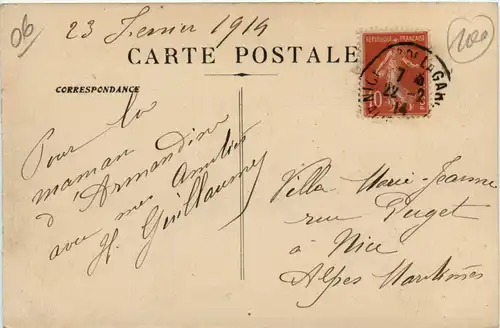 06
23 Fevrier 1914
1020
CARTE POSTALE
REPUBLIQUE FRANÇAISE
10
NICE
GARE
7
22-2
14
CORRESPONDANCE
Pour la
maman
d'Armandine
avec mes amitiés
H. Guillaumey
Villa Marie-Jeanne
rue Puget
à Nice
Alpes Maritimes